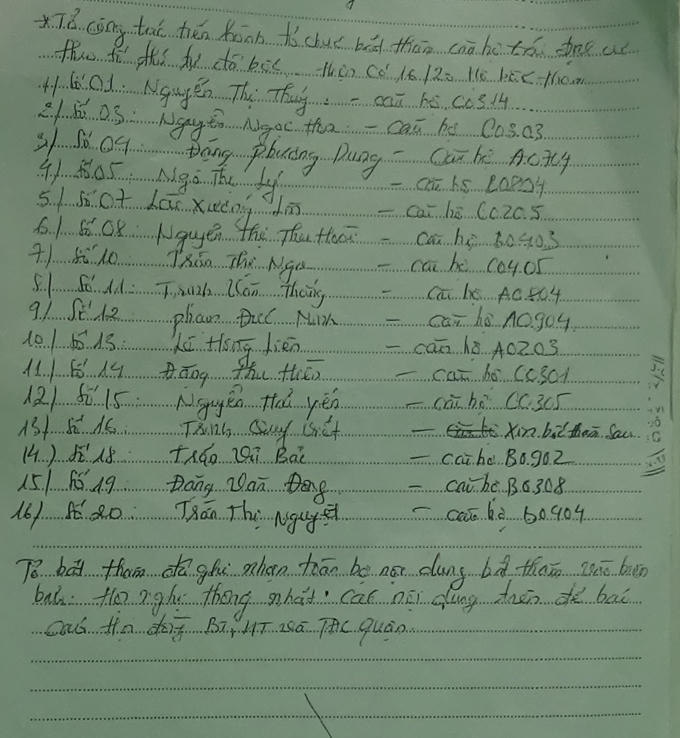 * Tổ công tác tiến hành tổ chức bốc thăm căn hộ
theo số thứ tự đã bốc. Hiện có 16/20 hộ bốc thăm
1/ Số 01: Nguyễn Thị Thuý - căn hộ C0314
2/ Số 03: Nguyễn Ngọc - căn hộ C0303
3/ Số 04: Đặng Phương Dung - Căn hộ A0704
4/ Số 05: Ngô Thị Lý - căn hộ B0804
5/ Số 07 Xương - căn hộ C0205
6/ Số 08: Nguyễn Thị Thu Hoài - Căn hộ B0403
7/ Số 10 Trần Thị Nga - căn hộ C0405
8/ Số 11: Trịnh Văn Thông - căn hộ A0804
9/ Số 12 phan Đức Ninh - căn hộ A0904
10/ Số 13 Lê Hồng Liên - căn hộ A0203
11/ Số 14 Đặng Thu Hiền - căn hộ C0301
12/ Số 15 Nguyễn Hải yến - căn hộ C0305
13/ Số 16 Trịnh Quý - Xin bốc thăm Sau
14/ Số 18 Bắc - căn hộ B0902
15/ Số 19 Đặng Văn Đông - căn hộ B0308
16/ Số 20: Trần Thị Nguyệt - căn hộ b0404
Tổ bốc thăm đã ghi nhận toàn bộ nội dung bốc thăm vào biên
bản. Hội nghị thống nhất các nội dung trên để báo
cáo Hội đồng BT, HT và TĐC Quận.